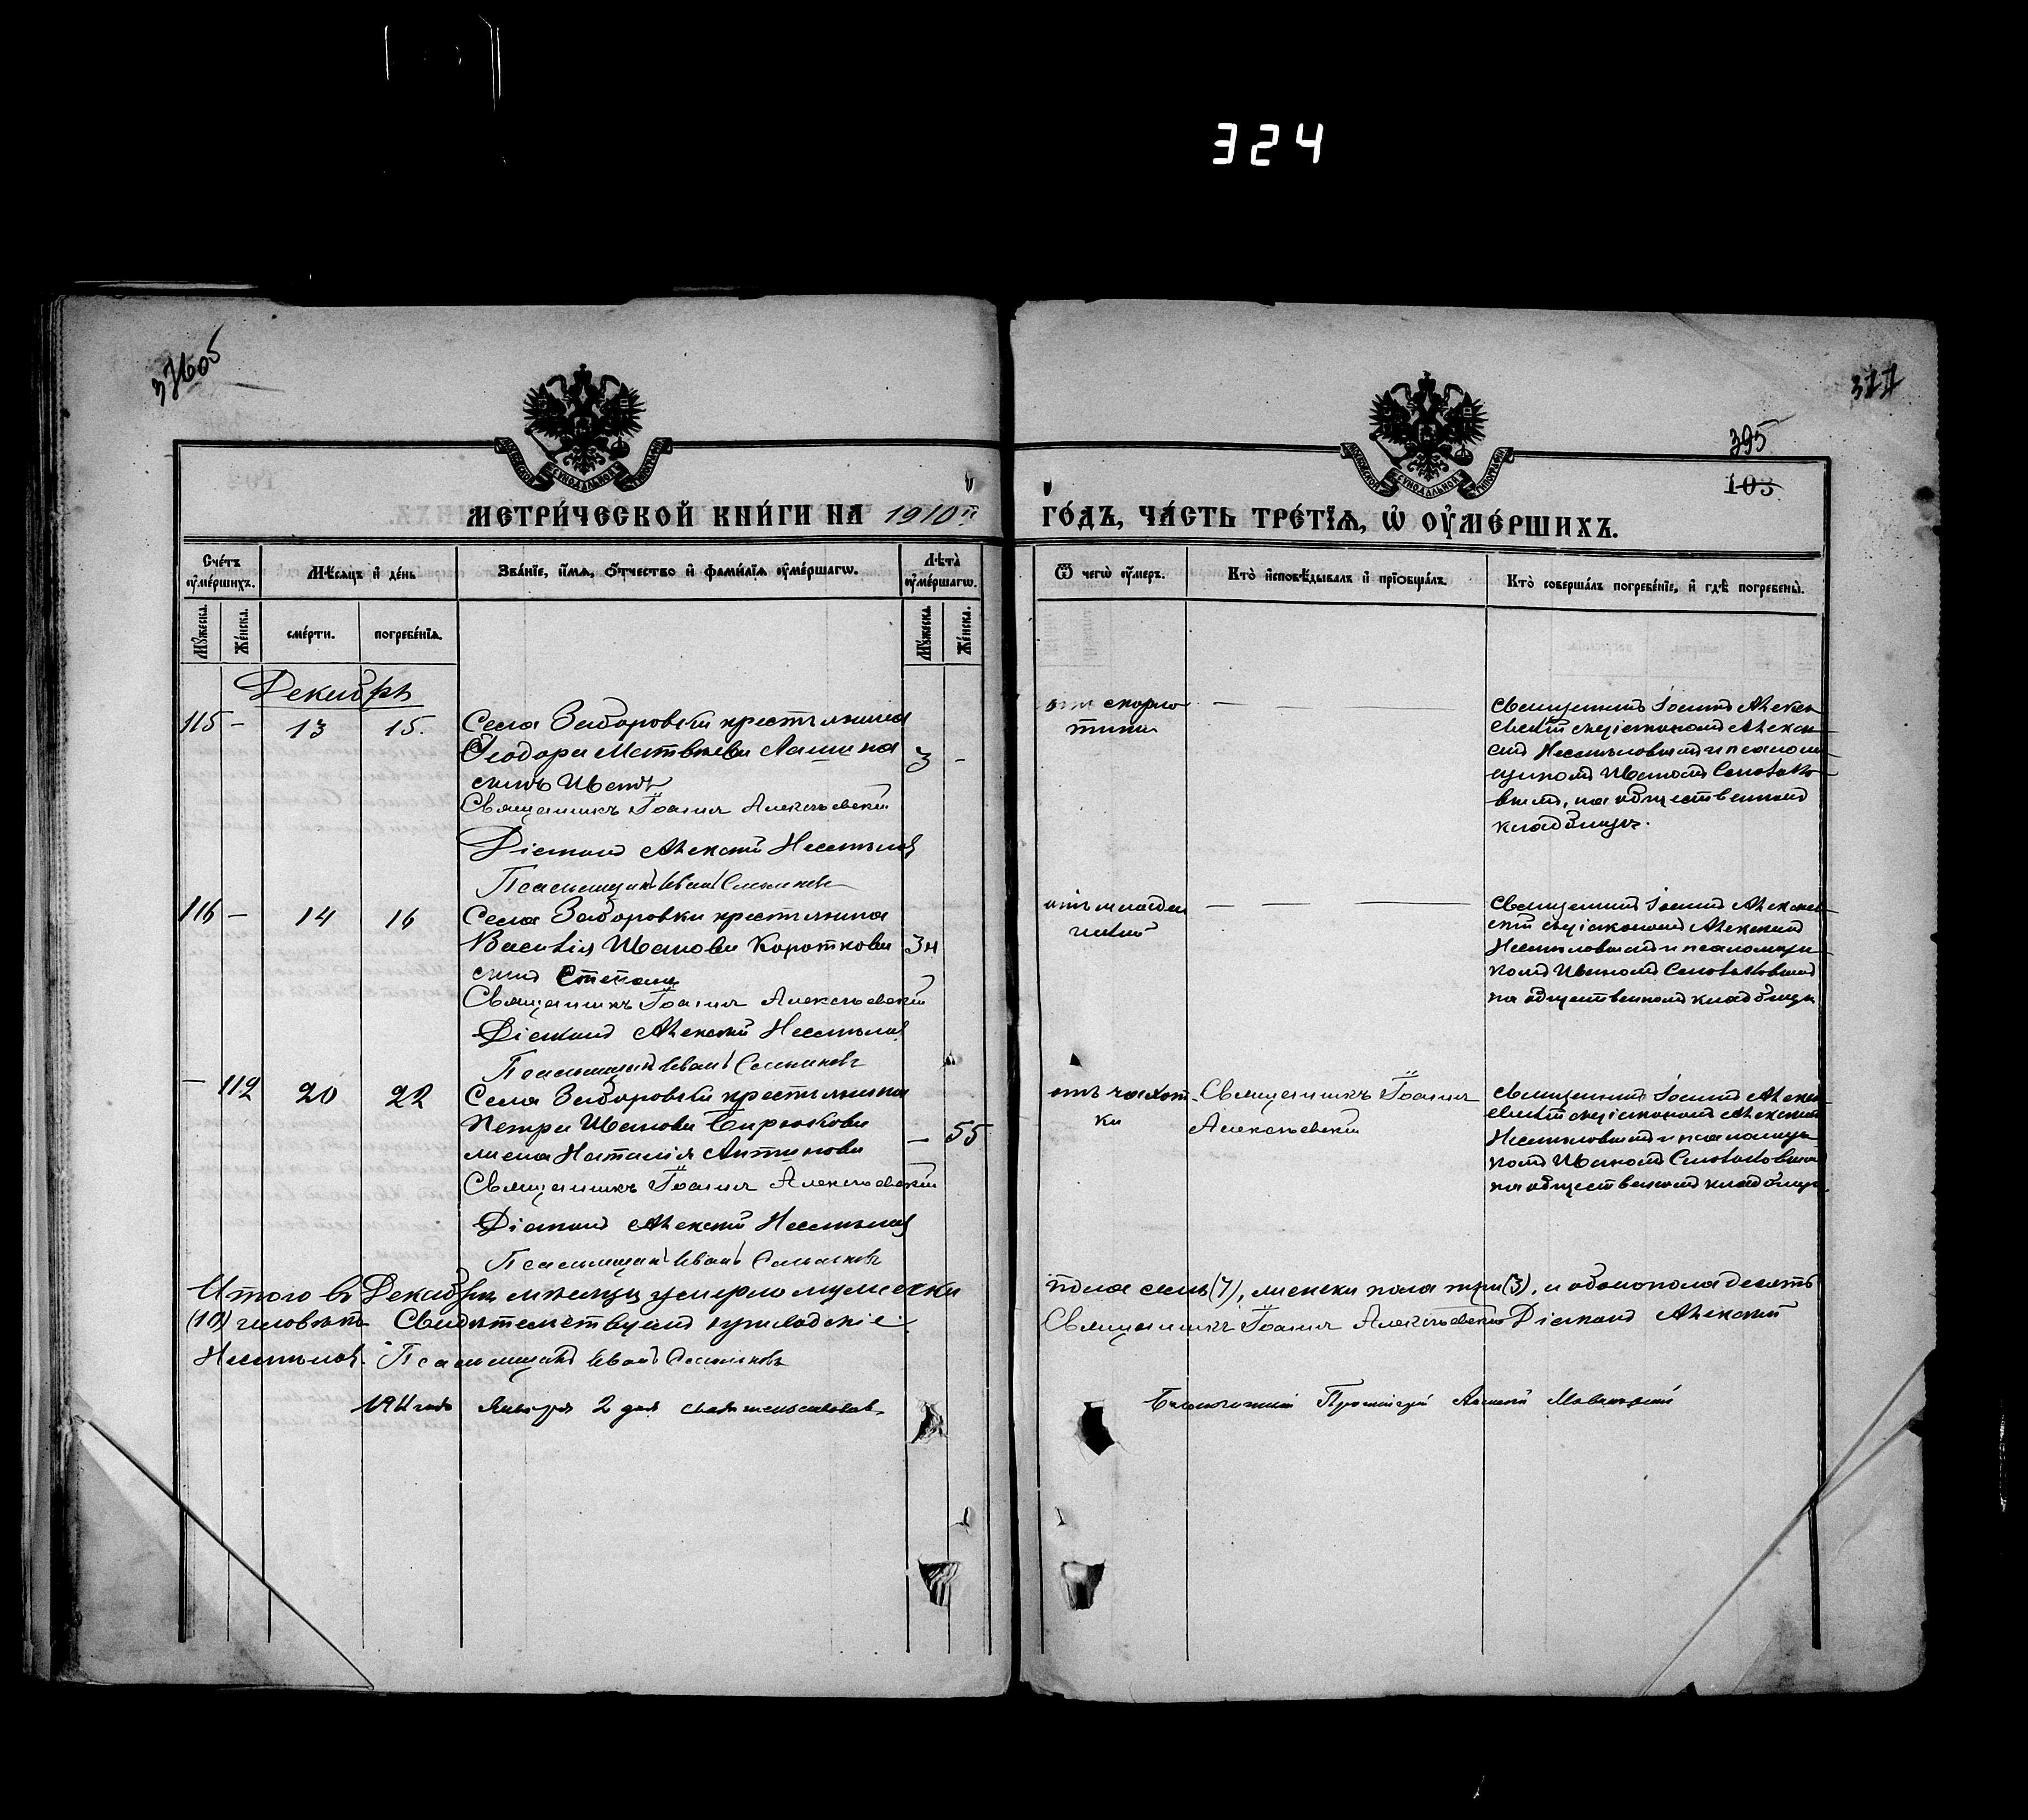 324
395
103
МЕТРИ́ЧЕСКОЙ КНИ́ГИ НА 1910й ГО́ДЪ, ЧА́СТЬ ТРЕ́ТІѦ, Ѡ҆ ОУ҆МЕ́РШИХЪ.
Сче́тъ оу҆ме́ршихъ.
Мѣ́сяцъ и҆ де́нь
Зва́ніе, и҆́мя, ѻ҆́тчество и҆ фами́лія оу҆ме́ршагѡ.
Лѣта̀ оу҆ме́ршагѡ.
Ѿ чегѡ̀ оу҆́меръ.
Кто̀ и҆сповѣ́дывалъ и҆ прїѡбща́лъ.
Кто̀ соверша́лъ погребе́ніе, и҆ гдѣ̀ погребены̀.
Мꙋ́жеска.
Же́нска.
сме́рти.
погребе́нія.
Мꙋ́жеска.
Же́нска.
Декабрь
115 – 13 15. Села Заборовки крестьянина
Ѳеодора Матвѣева Лашина 3 –
сынъ Иванъ
Священникъ Іоаннъ Алексѣевскій
Діаконъ Алексій Несмѣловъ
Псаломщикъ Иванъ
отъ скарла
тины
Священникъ Іоаннъ Алексѣ
евскій съ діакономъ Алексі
емъ Несмѣловымъ и псалом
щикомъ Иваномъ
вымъ, на общественномъ
кладбищѣ.
116 – 14 16 Села Заборовки крестьянина
Василія Иванова Короткова 3н
сынъ Степанъ
Священникъ Іоаннъ Алексѣевскій
Діаконъ Алексій Несмѣловъ
Псаломщикъ Иванъ
отъ младен
ческой
Священникъ Іоаннъ Алексѣев
скій съ діакономъ Алексіемъ
Несмѣловымъ и псаломщи
комъ Иваномъ
на общественномъ кладбищѣ
– 112 20 22 Села Заборовки крестьянина
Петра Иванова Бирюкова – 55
жена Наталія Антипова
Священникъ Іоаннъ Алексѣевскій
Діаконъ Алексій Несмѣловъ
Псаломщикъ Иванъ
отъ чахот
ки
Священникъ Іоаннъ
Алексѣевскій
Священникъ Іоаннъ Алексѣ
евскій съ діакономъ Алексіемъ
Несмѣловымъ и псаломщи
комъ Иваномъ
на общественномъ кладбищѣ.
Итого въ Декабрѣ мѣсяцѣ умерло мужеска пола семь (7), женска пола три (3), и обоего пола десять
(10) человѣкъ Свидѣтельствуемъ Священникъ Іоаннъ Алексѣевскій Діаконъ Алексій
Несмѣловъ. Псаломщикъ Иванъ
1911 года Января 2 дня свидѣтельствовалъ Благочинный Протоіерей Алексій